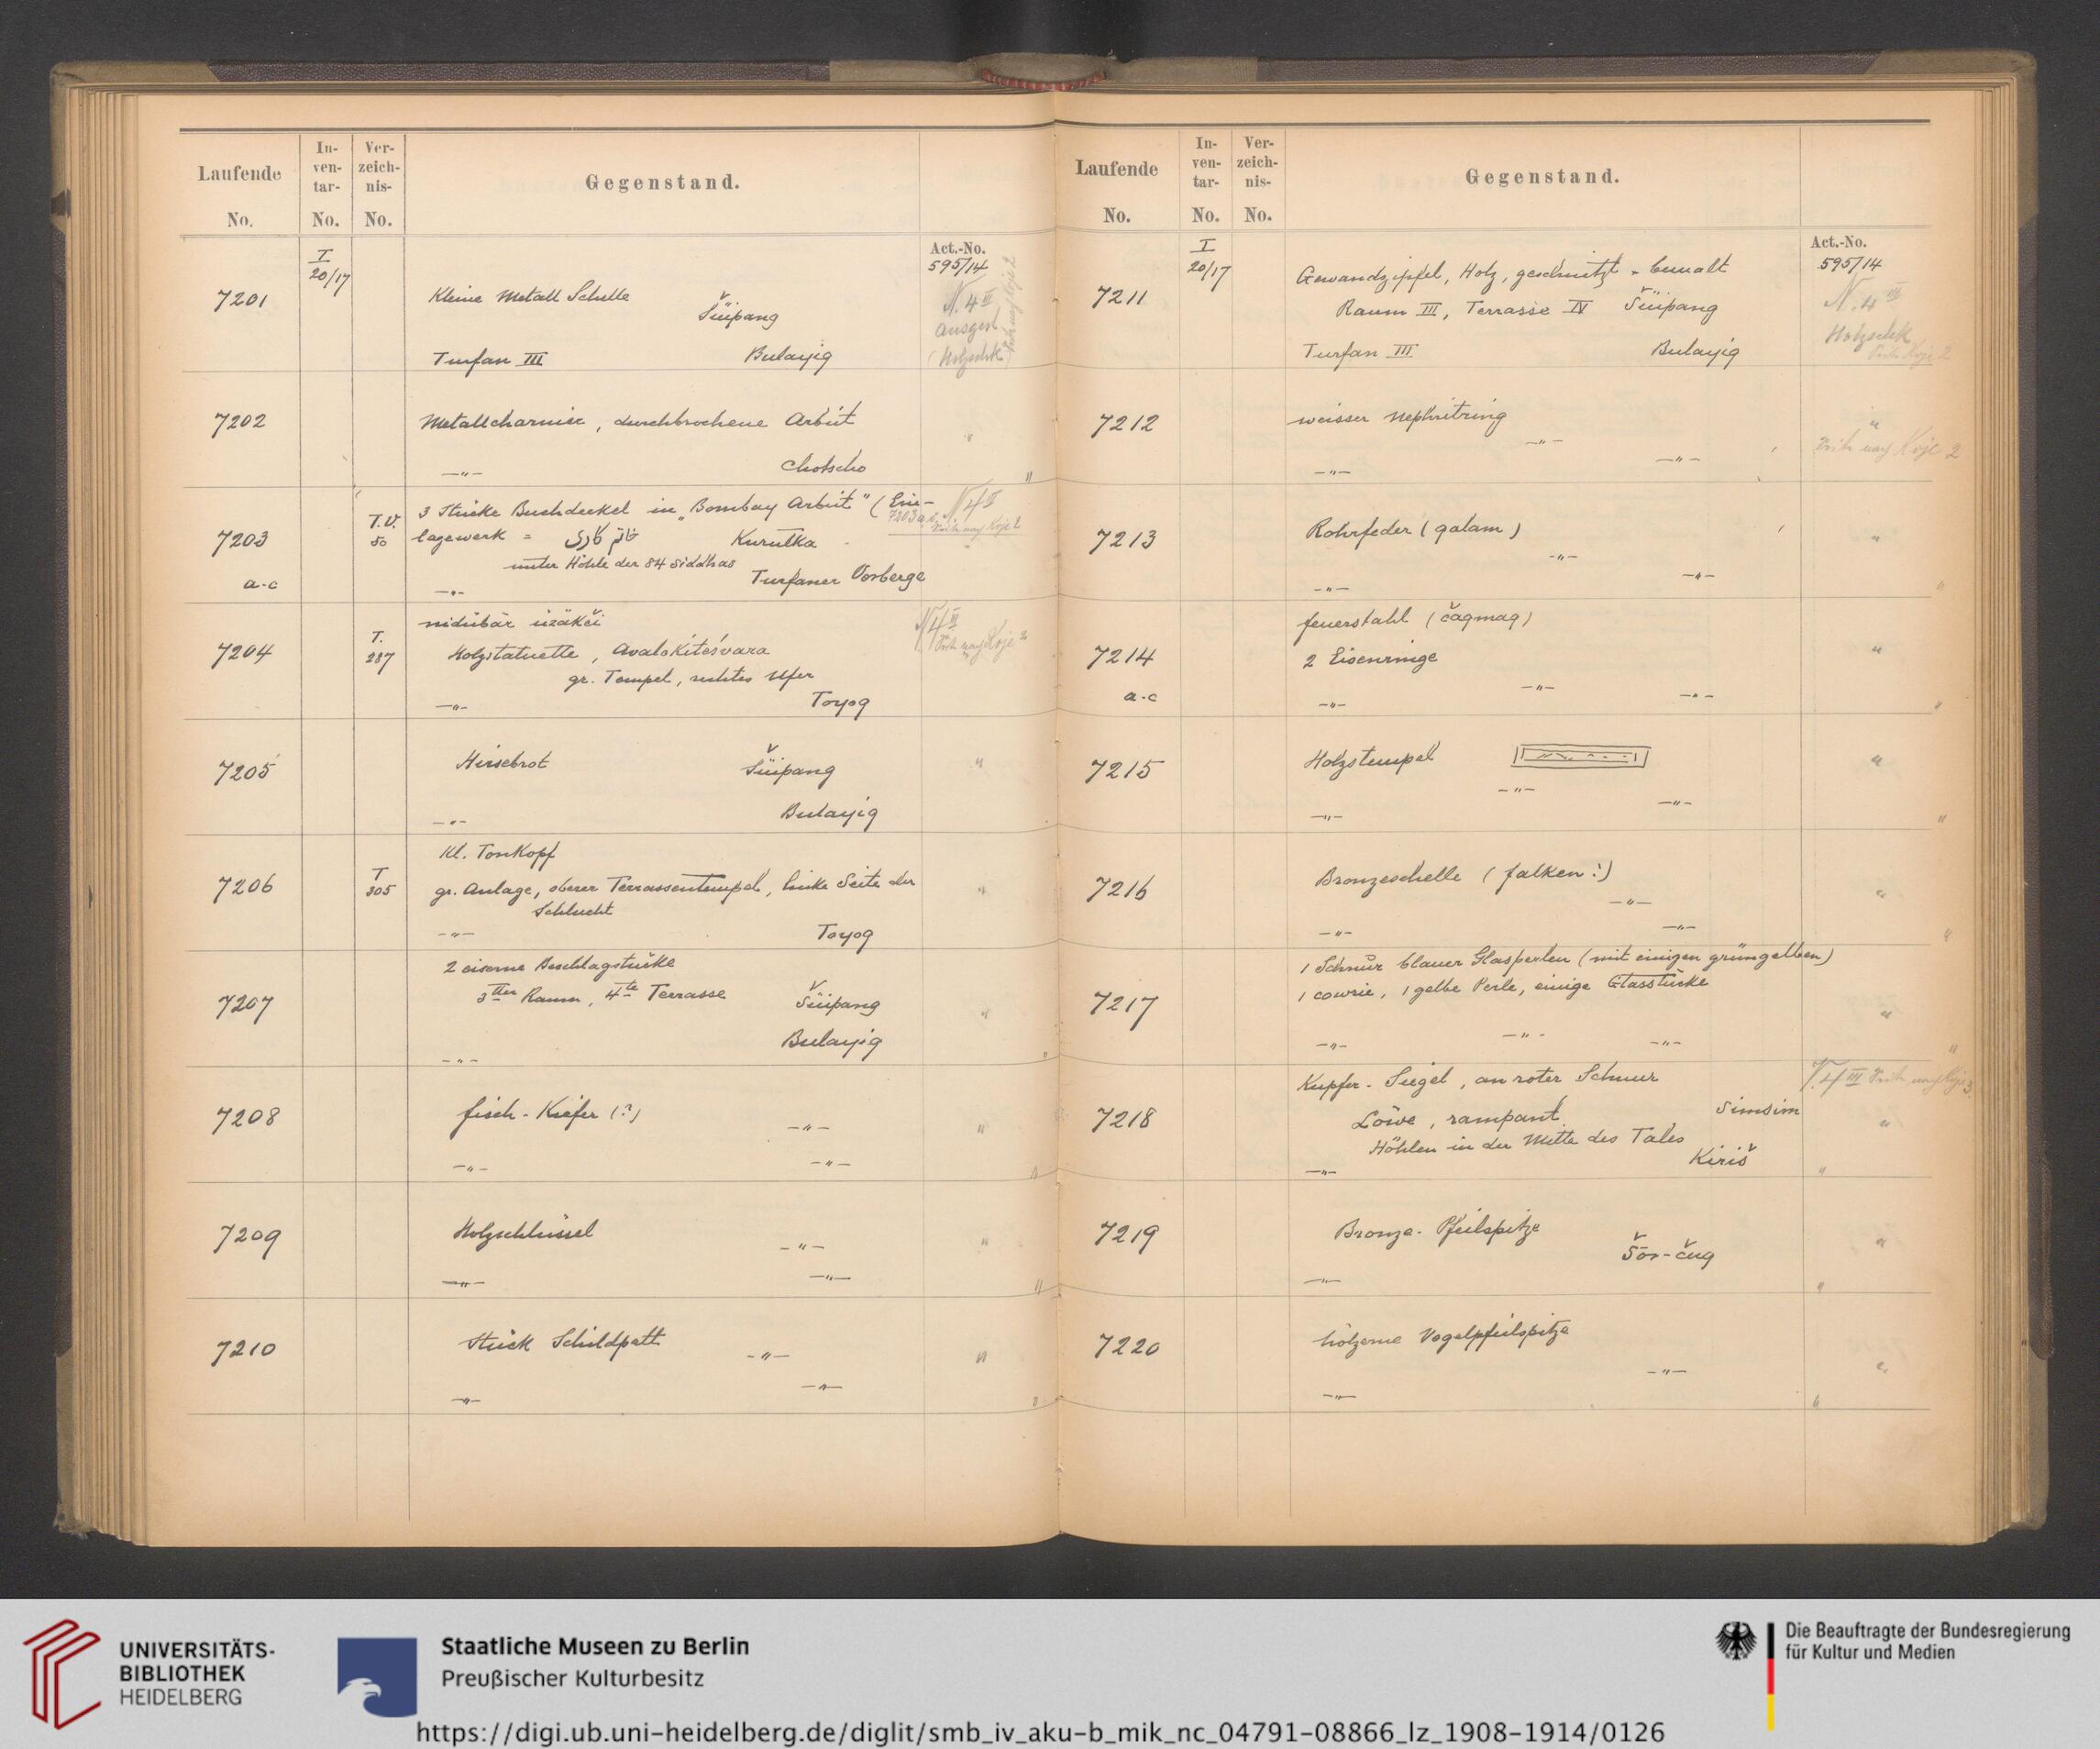 Laufende
No.
In-
ven-
tar-
No.
Ver-
zeich-
nis-
No.
Gegenstand.
Act.-No.
595/14
I
20/17
7201
Kleine Metall Schelle
Šüipang
Turfan III
Bulayig
N. 4 II
ausgest
(Holzschk.)
7202
Metallcharnier, durchbrochene Arbeit
—"—
Chotscho
"
7203
a-c
T.V.
50
3 Stücke Buchdeckel in „Bombay Arbeit" (Ein-
lagewerk = خاتم کاری Kurutka
unter Höhle der 84 Siddhas
—"— Turfaner Vorberge
N 4 II
7204
T.
287
nidübär üzäkči
Holzstatuette, Avalokiteśvara
gr. Tempel, rechtes Ufer
—"— Toyog
N 4 III
7205
Hirsebrot
Šüipang
—"— Bulayig
"
7206
T
305
Kl. Tonkopf
gr. Anlage, oberer Terrassentempel, linke Seite der
Schlucht
—"— Toyog
"
7207
2 eiserne Beschlagstücke
3ter Raum, 4te Terrasse Šüipang
Bulayig
—"—
"
7208
fisch-Kiefer (?)
—"—
—"— —"—
"
7209
Holzschlüssel
—"—
—"— —"—
"
7210
Stück Schildpatt
—"—
—"—
—"—
"
Laufende
No.
In-
ven-
tar-
No.
Ver-
zeich-
nis-
No.
Gegenstand.
Act.-No.
595/14
I
20/17
7211
Gewandzipfel, Holz, geschnitzt - bemalt
Raum III, Terrasse IV Šüipang
Turfan III Bulayig
N. 4 III
Holzschk
7212
weisser Nephritring
—"—
—"— —"—
"
Koje 2
7213
Rohrfeder (qalam)
—"—
—"— —"—
"
7214
a-c
feuerstahl (čaqmaq)
2 Eisenringe
—"— —"—
—"—
"
7215
Holzstempel
—"—
—"— —"—
"
7216
Bronzeschelle (falken?)
—"—
—"— —"—
"
7217
1 Schnur blauer Glasperlen (mit einigen grüngelben)
1 cowrie, 1 gelbe Perle, einige Glasstücke
—"— —"— —"—
"
7218
Kupfer-Siegel, an roter Schnur
Löwe, rampant Simsim
Höhlen in der Mitte des Tales
—"— Kiriš
"
7219
Bronze-Pfeilspitze
Šor-čug
—"—
"
7220
hölzerne Vogelpfeilspitze
—"—
—"—
"
UNIVERSITÄTS-
BIBLIOTHEK
HEIDELBERG
Staatliche Museen zu Berlin
Preußischer Kulturbesitz
Die Beauftragte der Bundesregierung
für Kultur und Medien
https://digi.ub.uni-heidelberg.de/diglit/smb_iv_aku-b_mik_nc_04791-08866_lz_1908-1914/0126